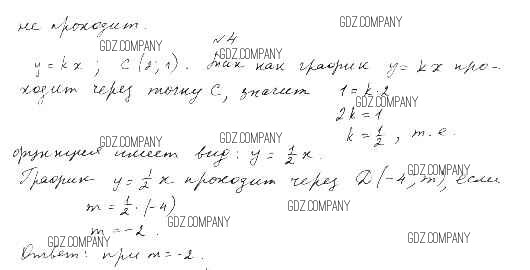 не проходит.
GDZ.COMPANY
№4
GDZ.COMPANY
GDZ.COMPANY
y = kx ; C (2; 1). Так как график y = kx про-
ходит через точку C, значит 1 = k·2
GDZ.COMPANY
2k = 1
k = 1/2, т.е.
GDZ.COMPANY
GDZ.COMPANY
функция имеет вид: y = 1/2 x.
GDZ.COMPANY
График y = 1/2 x проходит через D(-4, m), если
m = 1/2 · (-4)
GDZ.COMPANY
GDZ.COMPANY
m = -2.
GDZ.COMPANY
GDZ.COMPANY
Ответ: при m = -2.